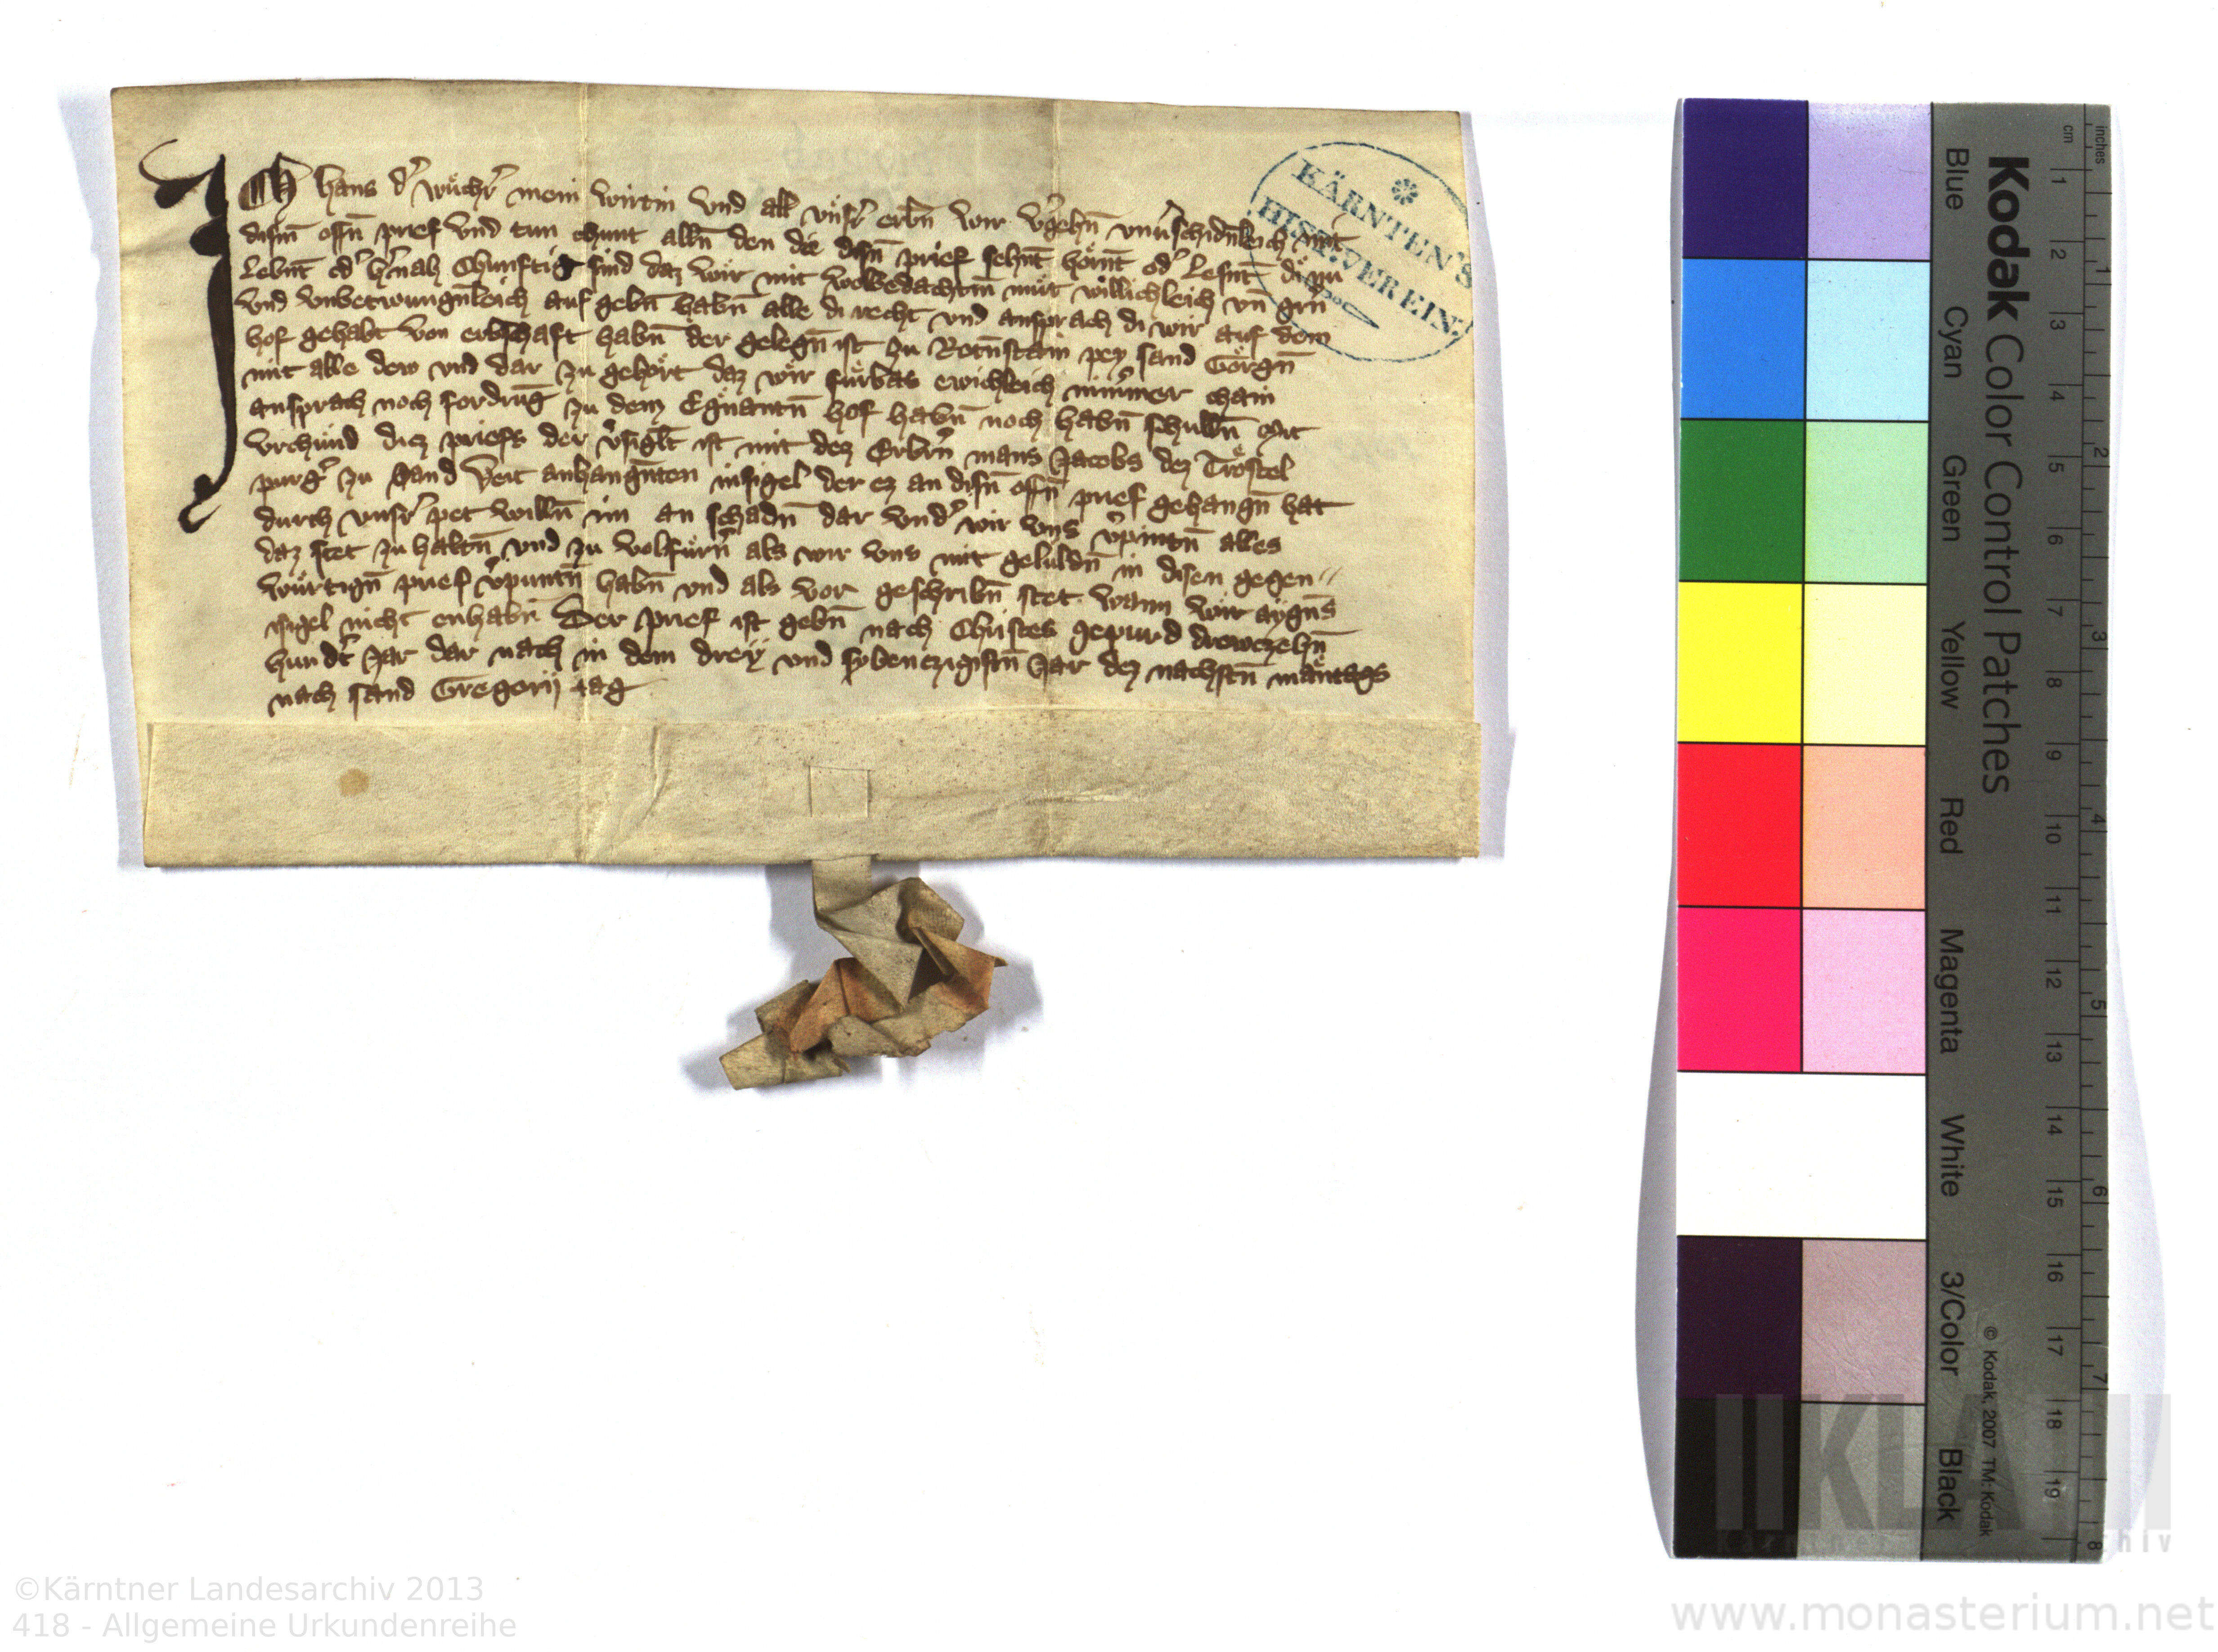 Ich hans dˀ wuͤchrˀ mein wirtin vnd all vnsrˀ erbn̄ wir vˀgehn̄ vnuˀschidnleich mit
dism̄ offn̄ prief vnd tun chunt alln̄ den die disn̄ prief sehnt̄ hoͤrnt̄ odˀ lesnt̄ di nu
lebnt̄ odˀ hˀnah chunftig sind daz wir mit wolbedachtm̄ muͤt willichleich vn̄ gern
vnd vnbetwungn̄leich auf gebn̄ habn̄ alle di recht vnd ansprach di wir auf dem
hof gehabt von erbschaft habn̄ der gelegn̄ ist zu Rotn̄stain pey sand Goͤrgn̄
mit alle dew vnd dar zu gehoͤrt daz wir fuͤrbas ewichleich nimmer chain
ansprach noch fordrūg zu dem Egn̄antn̄ hof habn̄ noch habn̄ schulln̄ Mit
vrchuͤnd diez priefs der vˀsiglt ist mit dez Erbrn̄ mans Jacobs dez Troͤstel
purgˀ zu sand Veit anhangn̄ten insigel der ez an disn̄ offn̄ prief gehangn̄ hat
durch vnsrˀ pet willn̄ im an schadn̄ dar vndˀ wir vns vˀpintn̄ alles
daz stet zu haltn̄ vnd zu volfuͤrn̄ als wir vns mit geluldn̄ in disen gegen〃
wuͤrtign̄ prief vˀpuntn̄ habn̄ vnd als vor geschribn̄ stet wann wir aygns̄
isigel nicht enhabn̄ Der prief ist gebn̄ nach Christes gepurd drewczehn̄
hundˀt Jar dar nach in dem drey vnd sybenczigistn̄ Jar dez nachstn̄ maͤntags
nach sand Gregorij tag
KÄRNTEN'S
HIST. VEREIN.
Kodak Color Control Patches
Blue Cyan Green Yellow Red Magenta White 3/Color Black
© Kodak, 2007 TM: Kodak
cm 1 2 3 4 5 6 7 8 9 10 11 12 13 14 15 16 17 18 19
inches 1 2 3 4 5 6 7 8
KLA
©Kärntner Landesarchiv 2013
418 - Allgemeine Urkundenreihe
www.monasterium.net